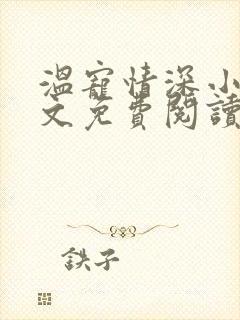 溫寵情深小
文免費閱讀
鉄子